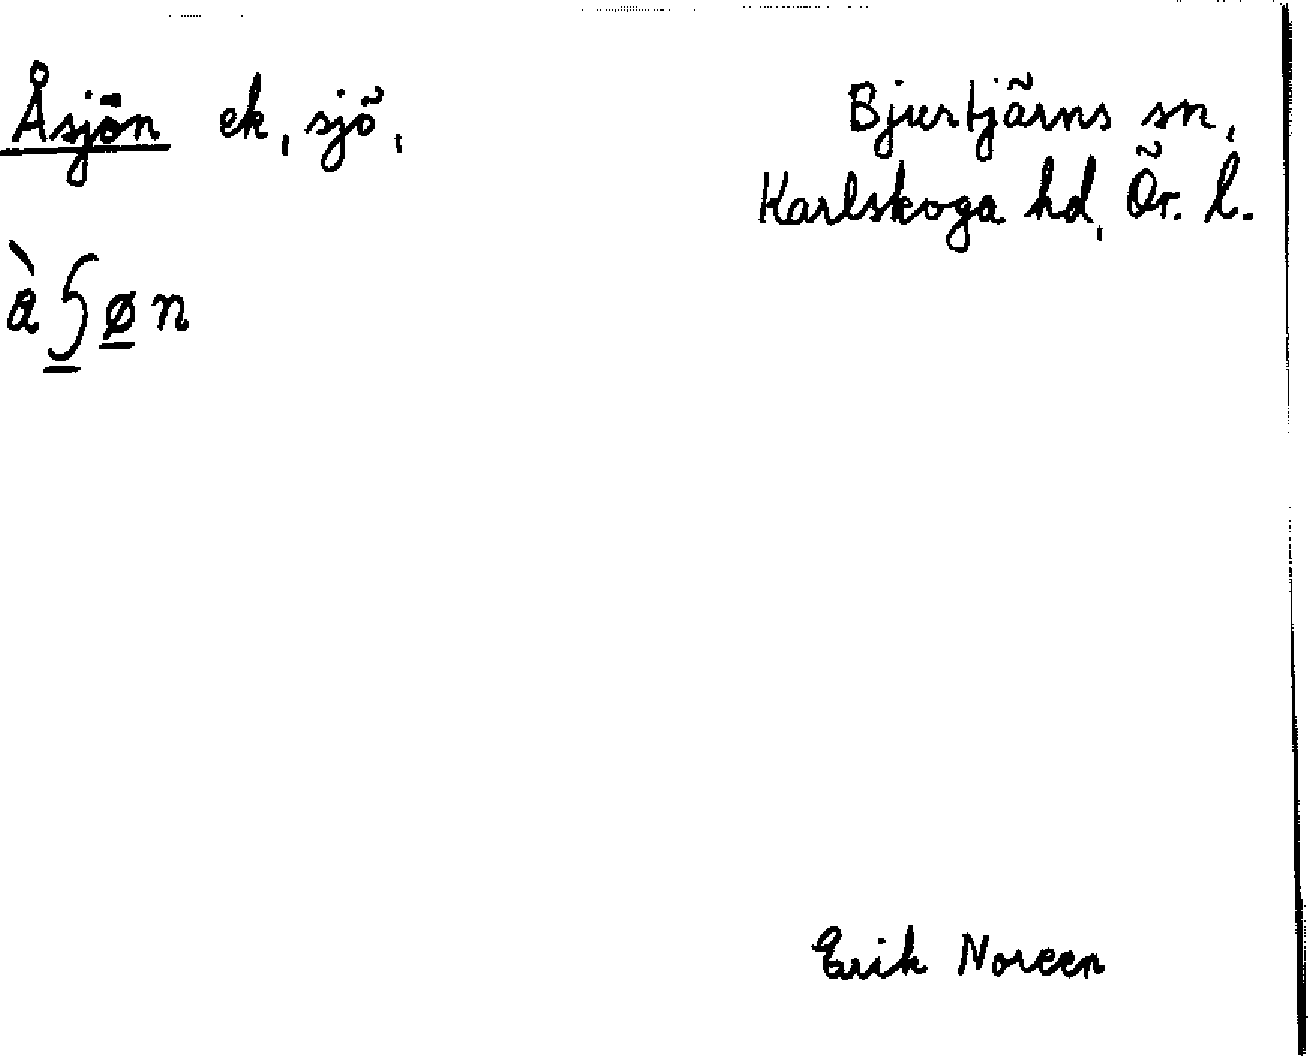 Åsjön ek, sjö,
Bjurtjärns sn,
Karlskoga hd, Ör. l.
Erik Noreen